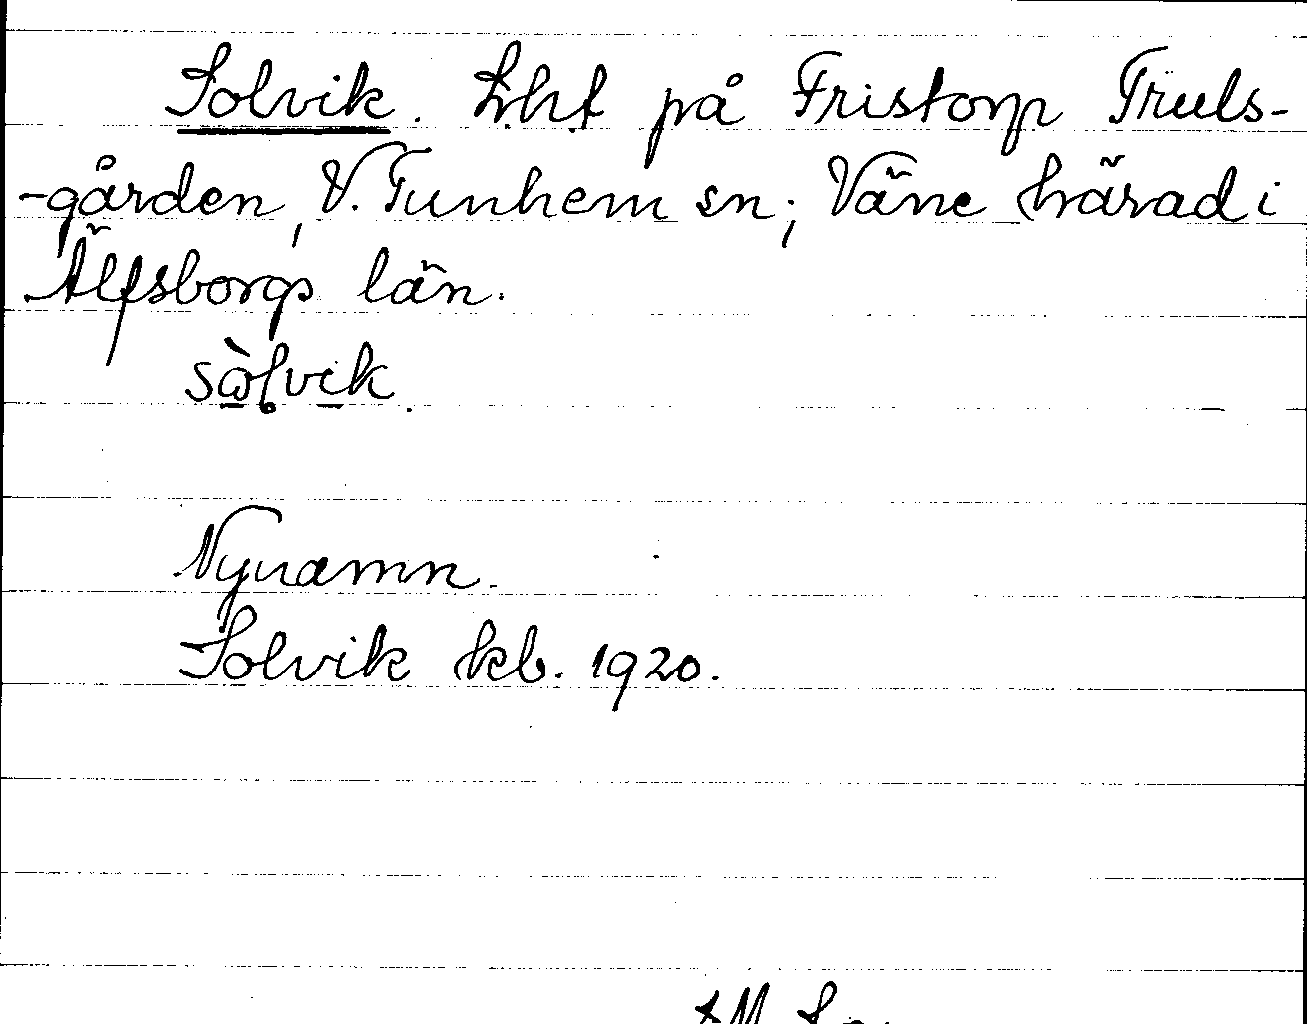 Solvik. Lht på Fristorp Truls-
-gården, V. Tunhem sn; Väne härad i
Älfsborgs län.
sòlvik.
Nynamn.
Solvik kb. 1920.